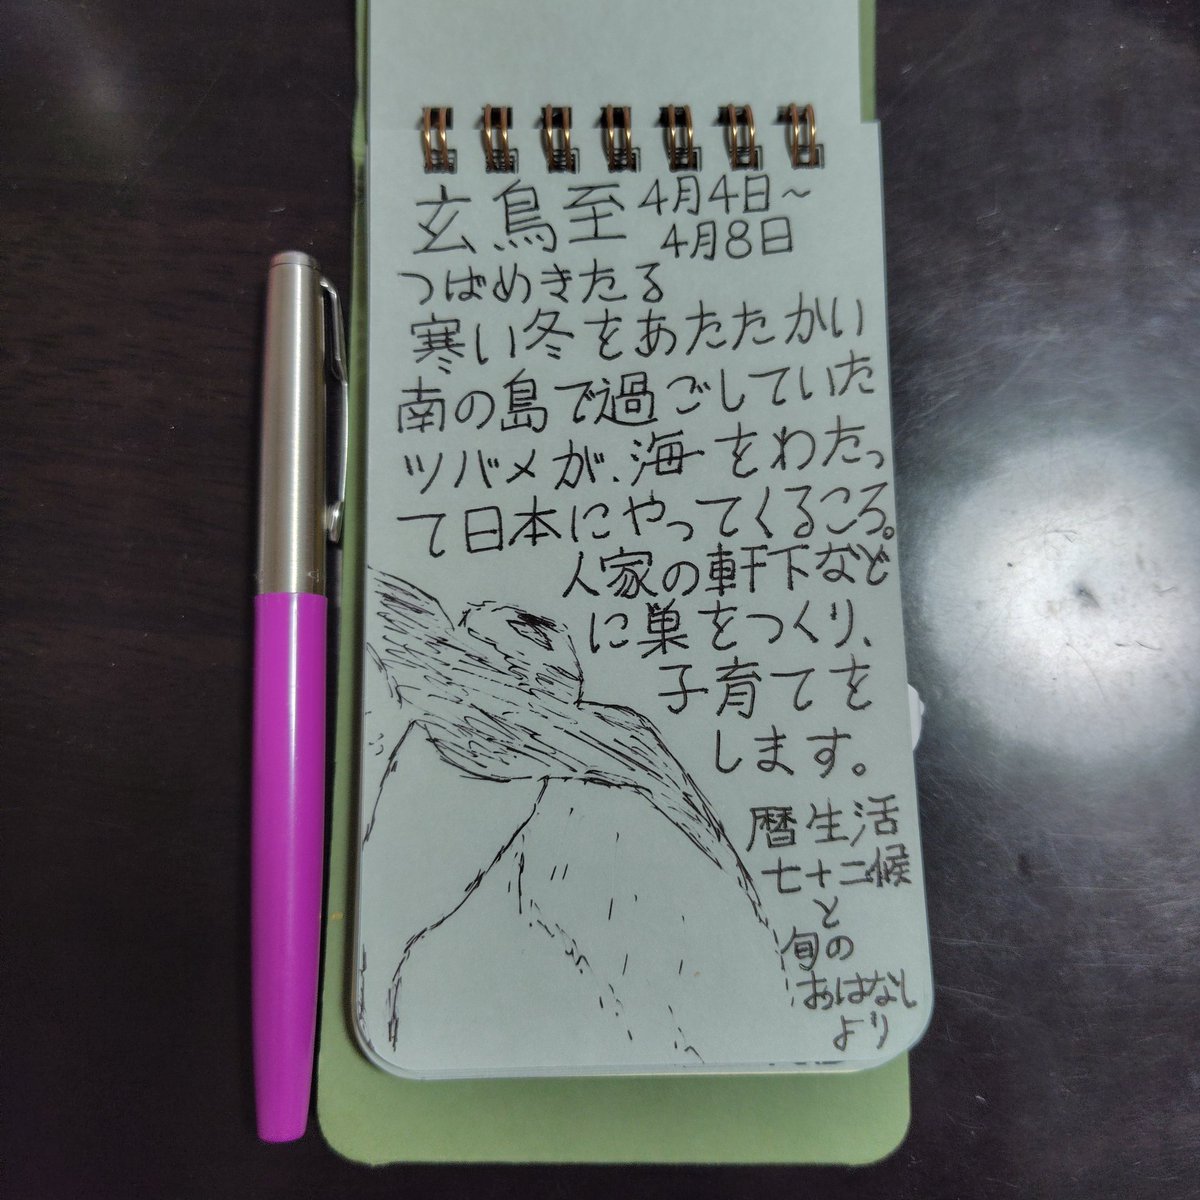 玄鳥至 4月4日～
4月8日
つばめきたる
寒い冬をあたたかい
南の島で過ごしていた
ツバメが、海をわたっ
て日本にやってくるころ。
人家の軒下など
に巣をつくり、
子育てを
します。
暦生活
七十二候
と
旬の
おはなし
より